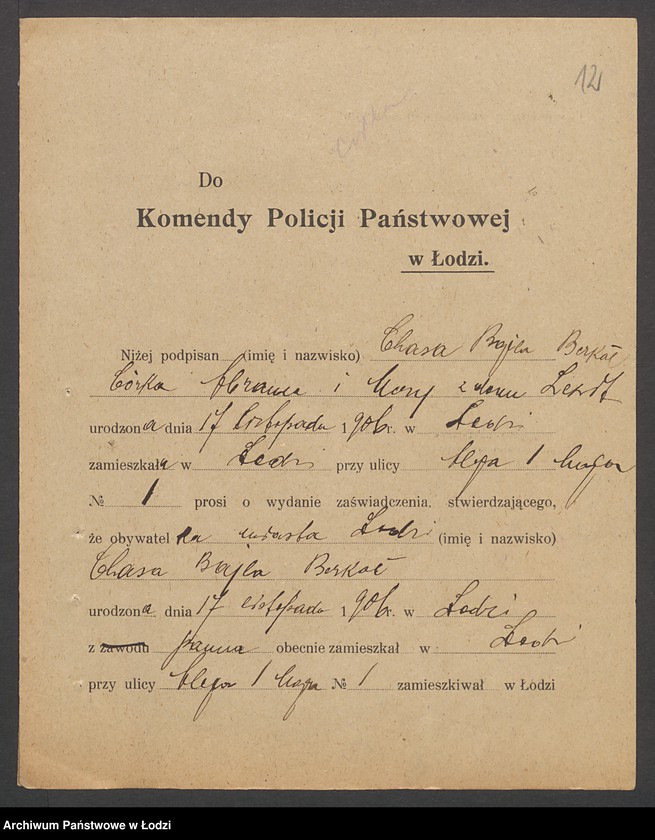 12
Do
Komendy Policji Państwowej
w Łodzi.
Niżej podpisan (imię i nazwisko) Chasa Bajla Berkał
Córka Abrama i z domu
urodzona dnia 17 listopada 1906 r. w Łodzi
zamieszkała w Łodzi przy ulicy Aleja 1 Maja
№ 1 prosi o wydanie zaświadczenia, stwierdzającego,
że obywatelka miasta Łodzi (imię i nazwisko)
Chasa Bajla Berkał
urodzona dnia 17 listopada 1906 r. w Łodzi
z zawodu panna obecnie zamieszkał w Łodzi
przy ulicy Aleja 1 Maja № 1 zamieszkiwał w Łodzi
Archiwum Państwowe w Łodzi